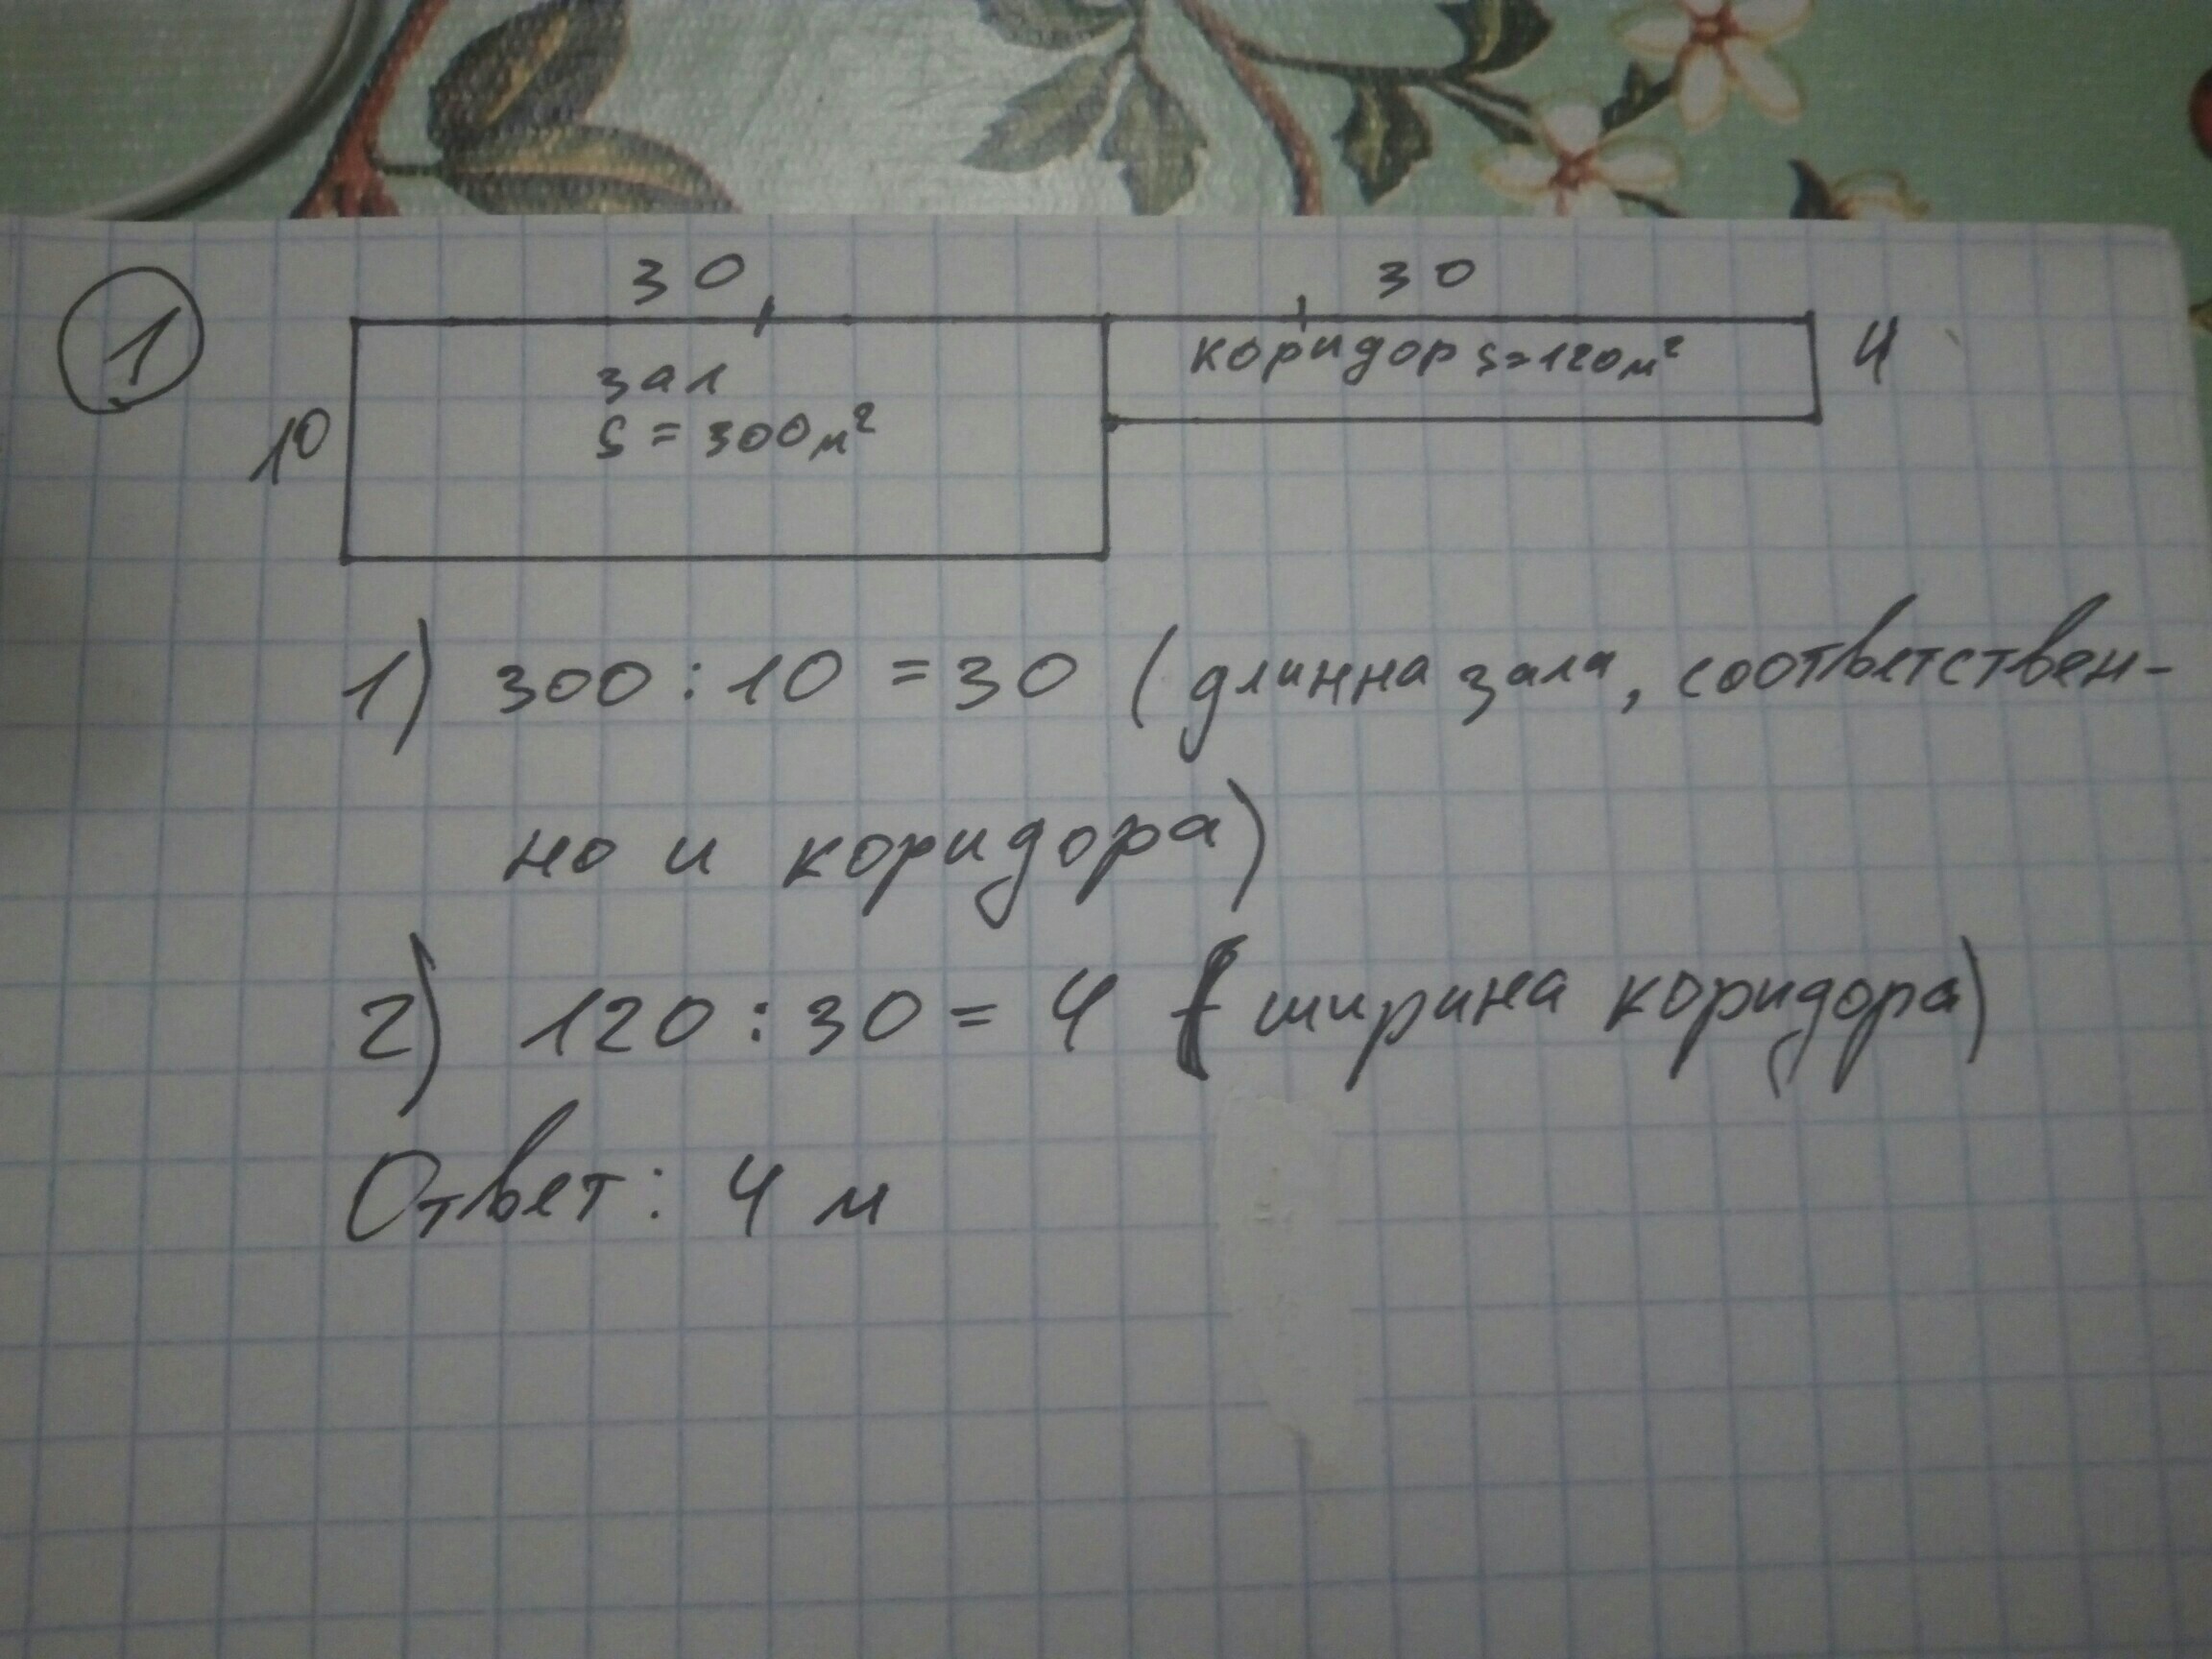 1
30 30
зал
S = 300м²
коридор S=120м²
4
10
1) 300 : 10 = 30 (длинна зала, соответствен-
но и коридора)
2) 120 : 30 = 4 (ширина коридора)
Ответ: 4 м